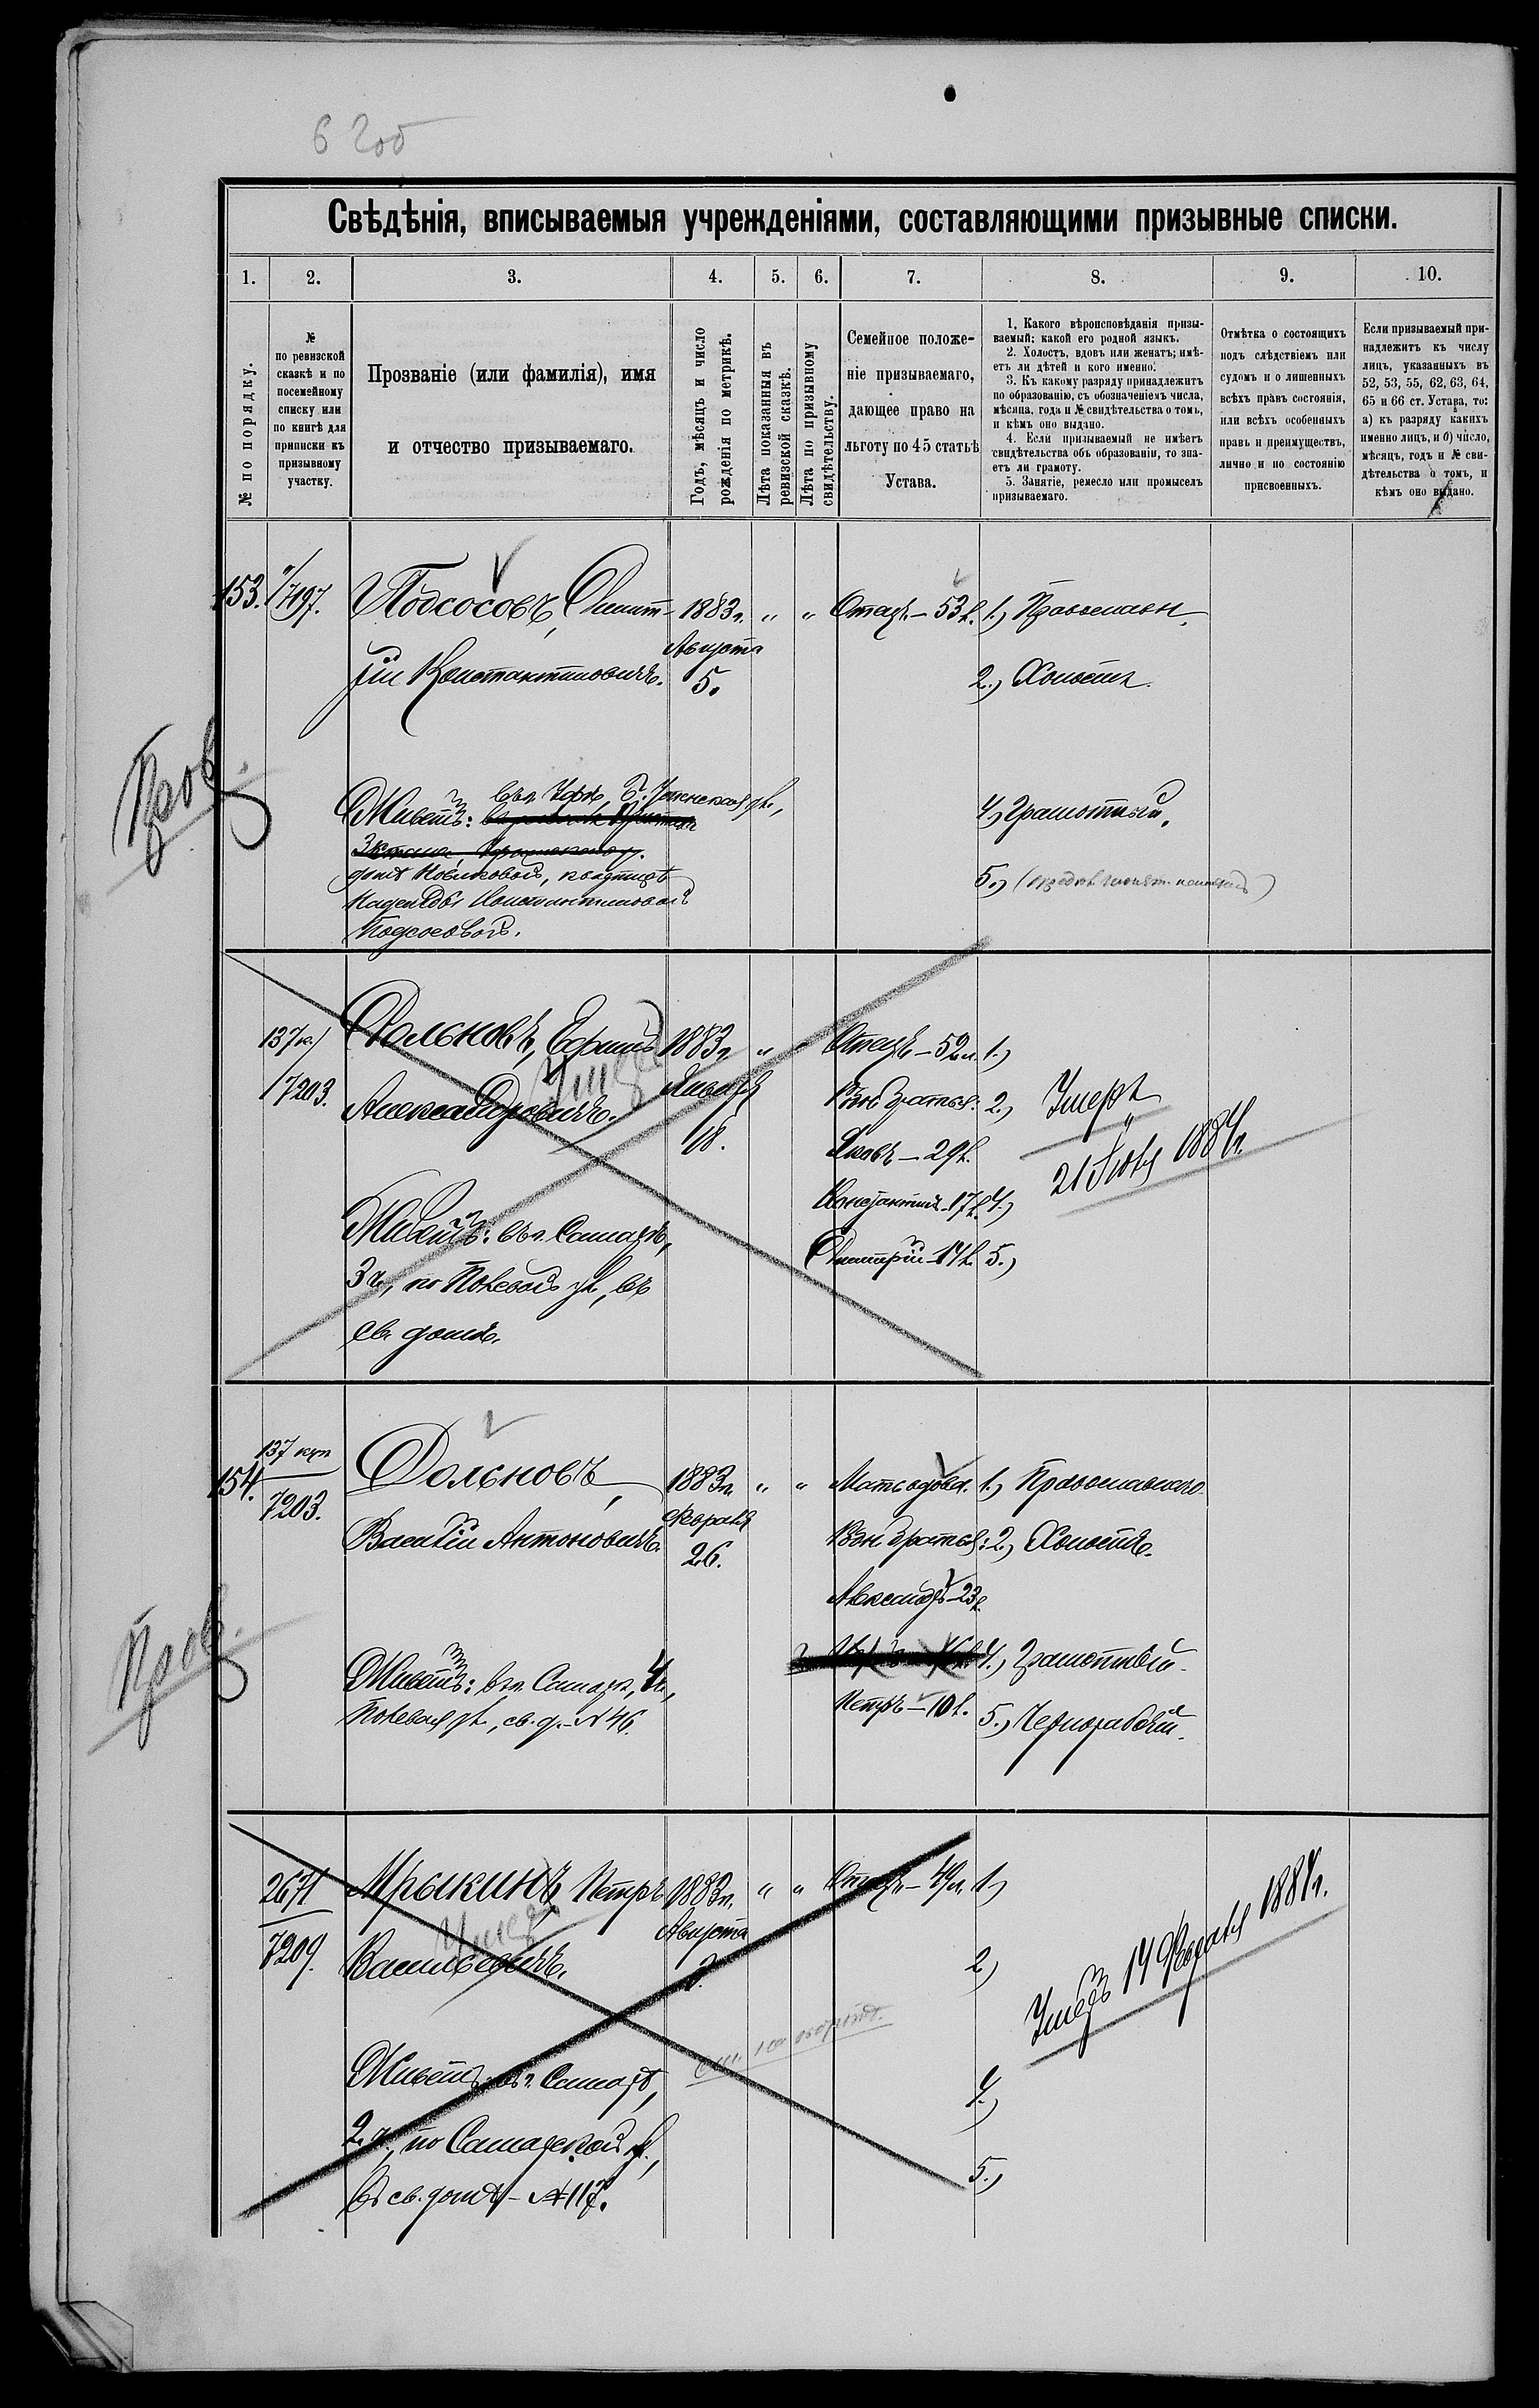 Свѣдѣнія, вписываемыя учрежденіями, составляющими призывные списки.
1. 2. 3. 4. 5. 6. 7. 8. 9. 10.
№ по порядку.
№
по ревизской
сказкѣ и по
посемейному
списку или
по книгѣ для
приписки къ
призывному
участку.
Прозваніе (или фамилія), имя
и отчество призываемаго.
Годъ, мѣсяцъ и число
рожденія по метрикѣ.
Лѣта показанныя въ
ревизской сказкѣ.
Лѣта по призывному
свидѣтельству.
Семейное положе-
ніе призываемаго,
дающее право на
льготу по 45 статьѣ
Устава.
1. Какого вѣроисповѣданія призы-
ваемый: какой его родной языкъ.
2. Холостъ, вдовъ или женатъ; имѣ-
етъ ли дѣтей и кого именно.
3. Къ какому разряду принадлежитъ
по образованію, съ обозначеніемъ числа,
мѣсяца, года и № свидѣтельства о томъ,
и кѣмъ оно выдано.
4. Если призываемый не имѣетъ
свидѣтельства объ образованіи, то зна-
етъ ли грамоту.
5. Занятіе, ремесло или промыселъ
призываемаго.
Отмѣтка о состоящихъ
подъ слѣдствіемъ или
судомъ и о лишенныхъ
всѣхъ правъ состоянія,
или всѣхъ особенныхъ
правъ и преимуществъ,
лично и по состоянію
присвоенныхъ.
Если призываемый при-
надлежитъ къ числу
лицъ, указанныхъ въ
52, 53, 55, 62, 63, 64,
65 и 66 ст. Устава, то:
а) къ разряду какихъ
именно лицъ, и б) число,
мѣсяцъ, годъ и № сви-
дѣтельства о томъ, и
кѣмъ оно выдано.
153. 7197. Подсосовъ, Димит- 1883 г. " " Отецъ - 53 л. 1.) Православн.
рій Константиновичъ. Августа 5. 2.) Холостъ.
Живетъ: въ г. Уфѣ,
4.) Грамотный.
домѣ Новиковой,
Надежды Константиновой
Подсосовой.
5.)
137 к. Дольновъ, Ефимъ 1883 г. " " Отецъ - 52 л. 1.)
7203. Александровичъ. Января 18. Родн. братья: 2.) Умеръ
Умеръ
Яковъ - 29 л. 21 1884 г.
Константинъ - 17 л. 4.)
Живетъ: въ г. Самарѣ, Дмитрій - 14 л. 5.)
3 ч., по Полевой ул., въ
св. домѣ.
154. 137 куп 7203. Дольновъ, 1883 г. " " Мать вдова. 1.) Православнаго.
Василій Антоновичъ. Февраля 26. Родн. братья: 2.) Холостъ.
Александръ - 23 л.
4.) Грамотный.
Живетъ: въ г. Самарѣ, 4 ч., Петръ - 10 л. 5.) Чернорабочій.
Полевая ул., св. д. - № 46.
2671 Мрыкинъ, Петръ 1883 г. " " Отецъ - 49 л. 1.)
7209. Васильевичъ. Августа 2.)
Умеръ
Умеръ 14 Февраля 1884 г.
Живетъ: въ г. Самарѣ, 4.)
2 ч., по Самарской ул., 5.)
въ св. домѣ - № 117.